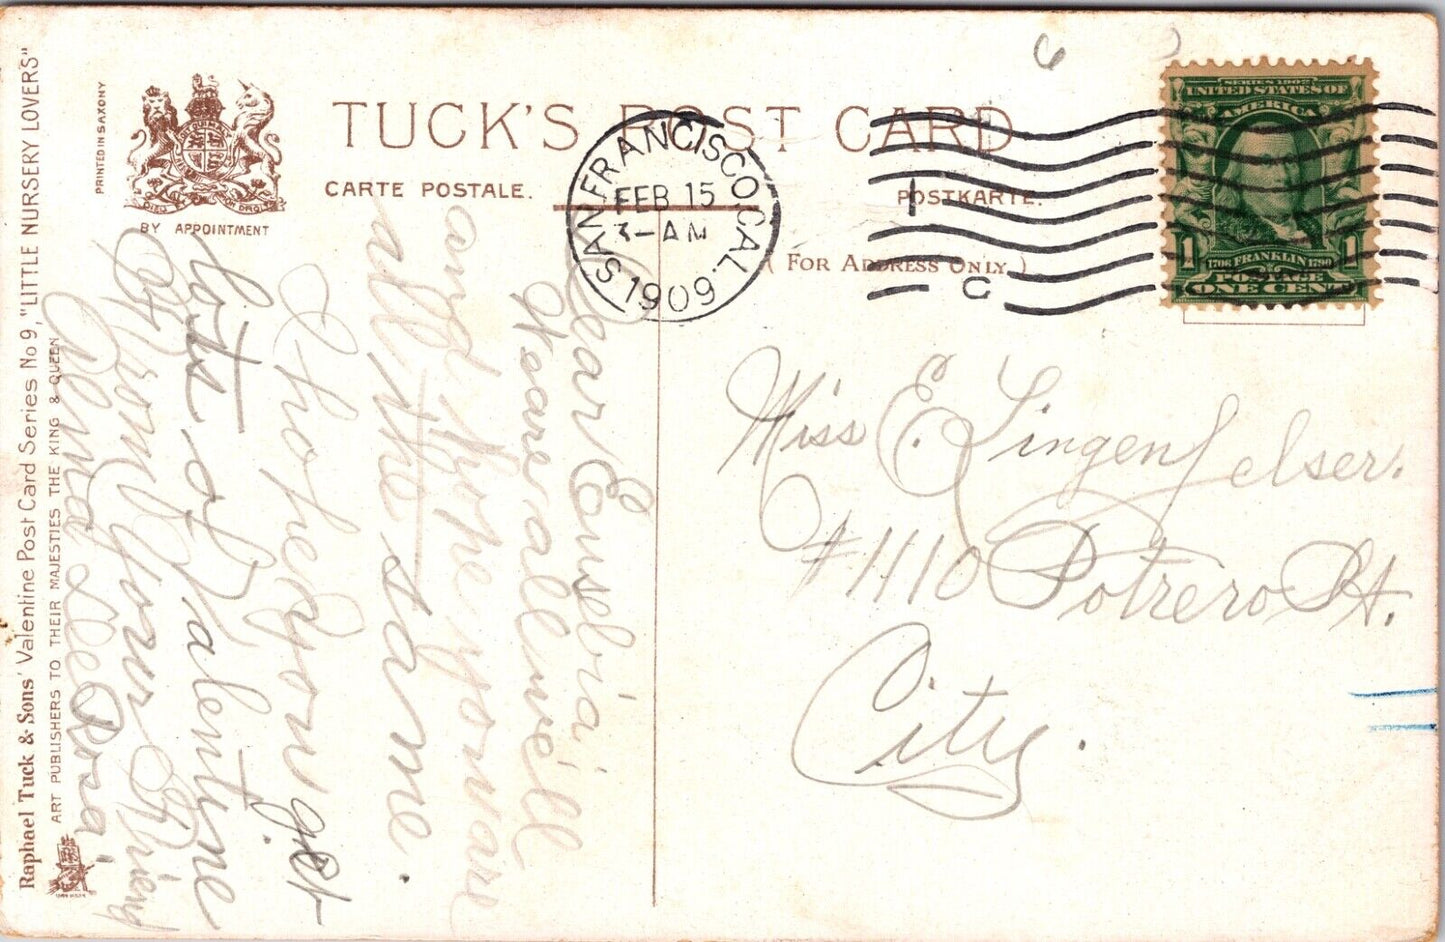 TUCK'S POST CARD
CARTE POSTALE.
POSTKARTE.
( FOR ADDRESS ONLY. )
PRINTED IN SAXONY
BY APPOINTMENT
Raphael Tuck & Sons' Valentine Post Card Series No 9, "LITTLE NURSERY LOVERS"
ART PUBLISHERS TO THEIR MAJESTIES THE KING & QUEEN
SAN FRANCISCO, CAL.
FEB 15
3-AM
1909
1
C
SERIES 1902
UNITED STATES OF
AMERICA
1706 FRANKLIN 1790
POSTAGE
1 ONE CENT 1
Dear Eusebia
We are all well
and hope you are
all the same.
I hope you get
lots of Valentine
From your Friend
Alma
Miss E. Lingenfelser.
#1110 Potrero St.
City.